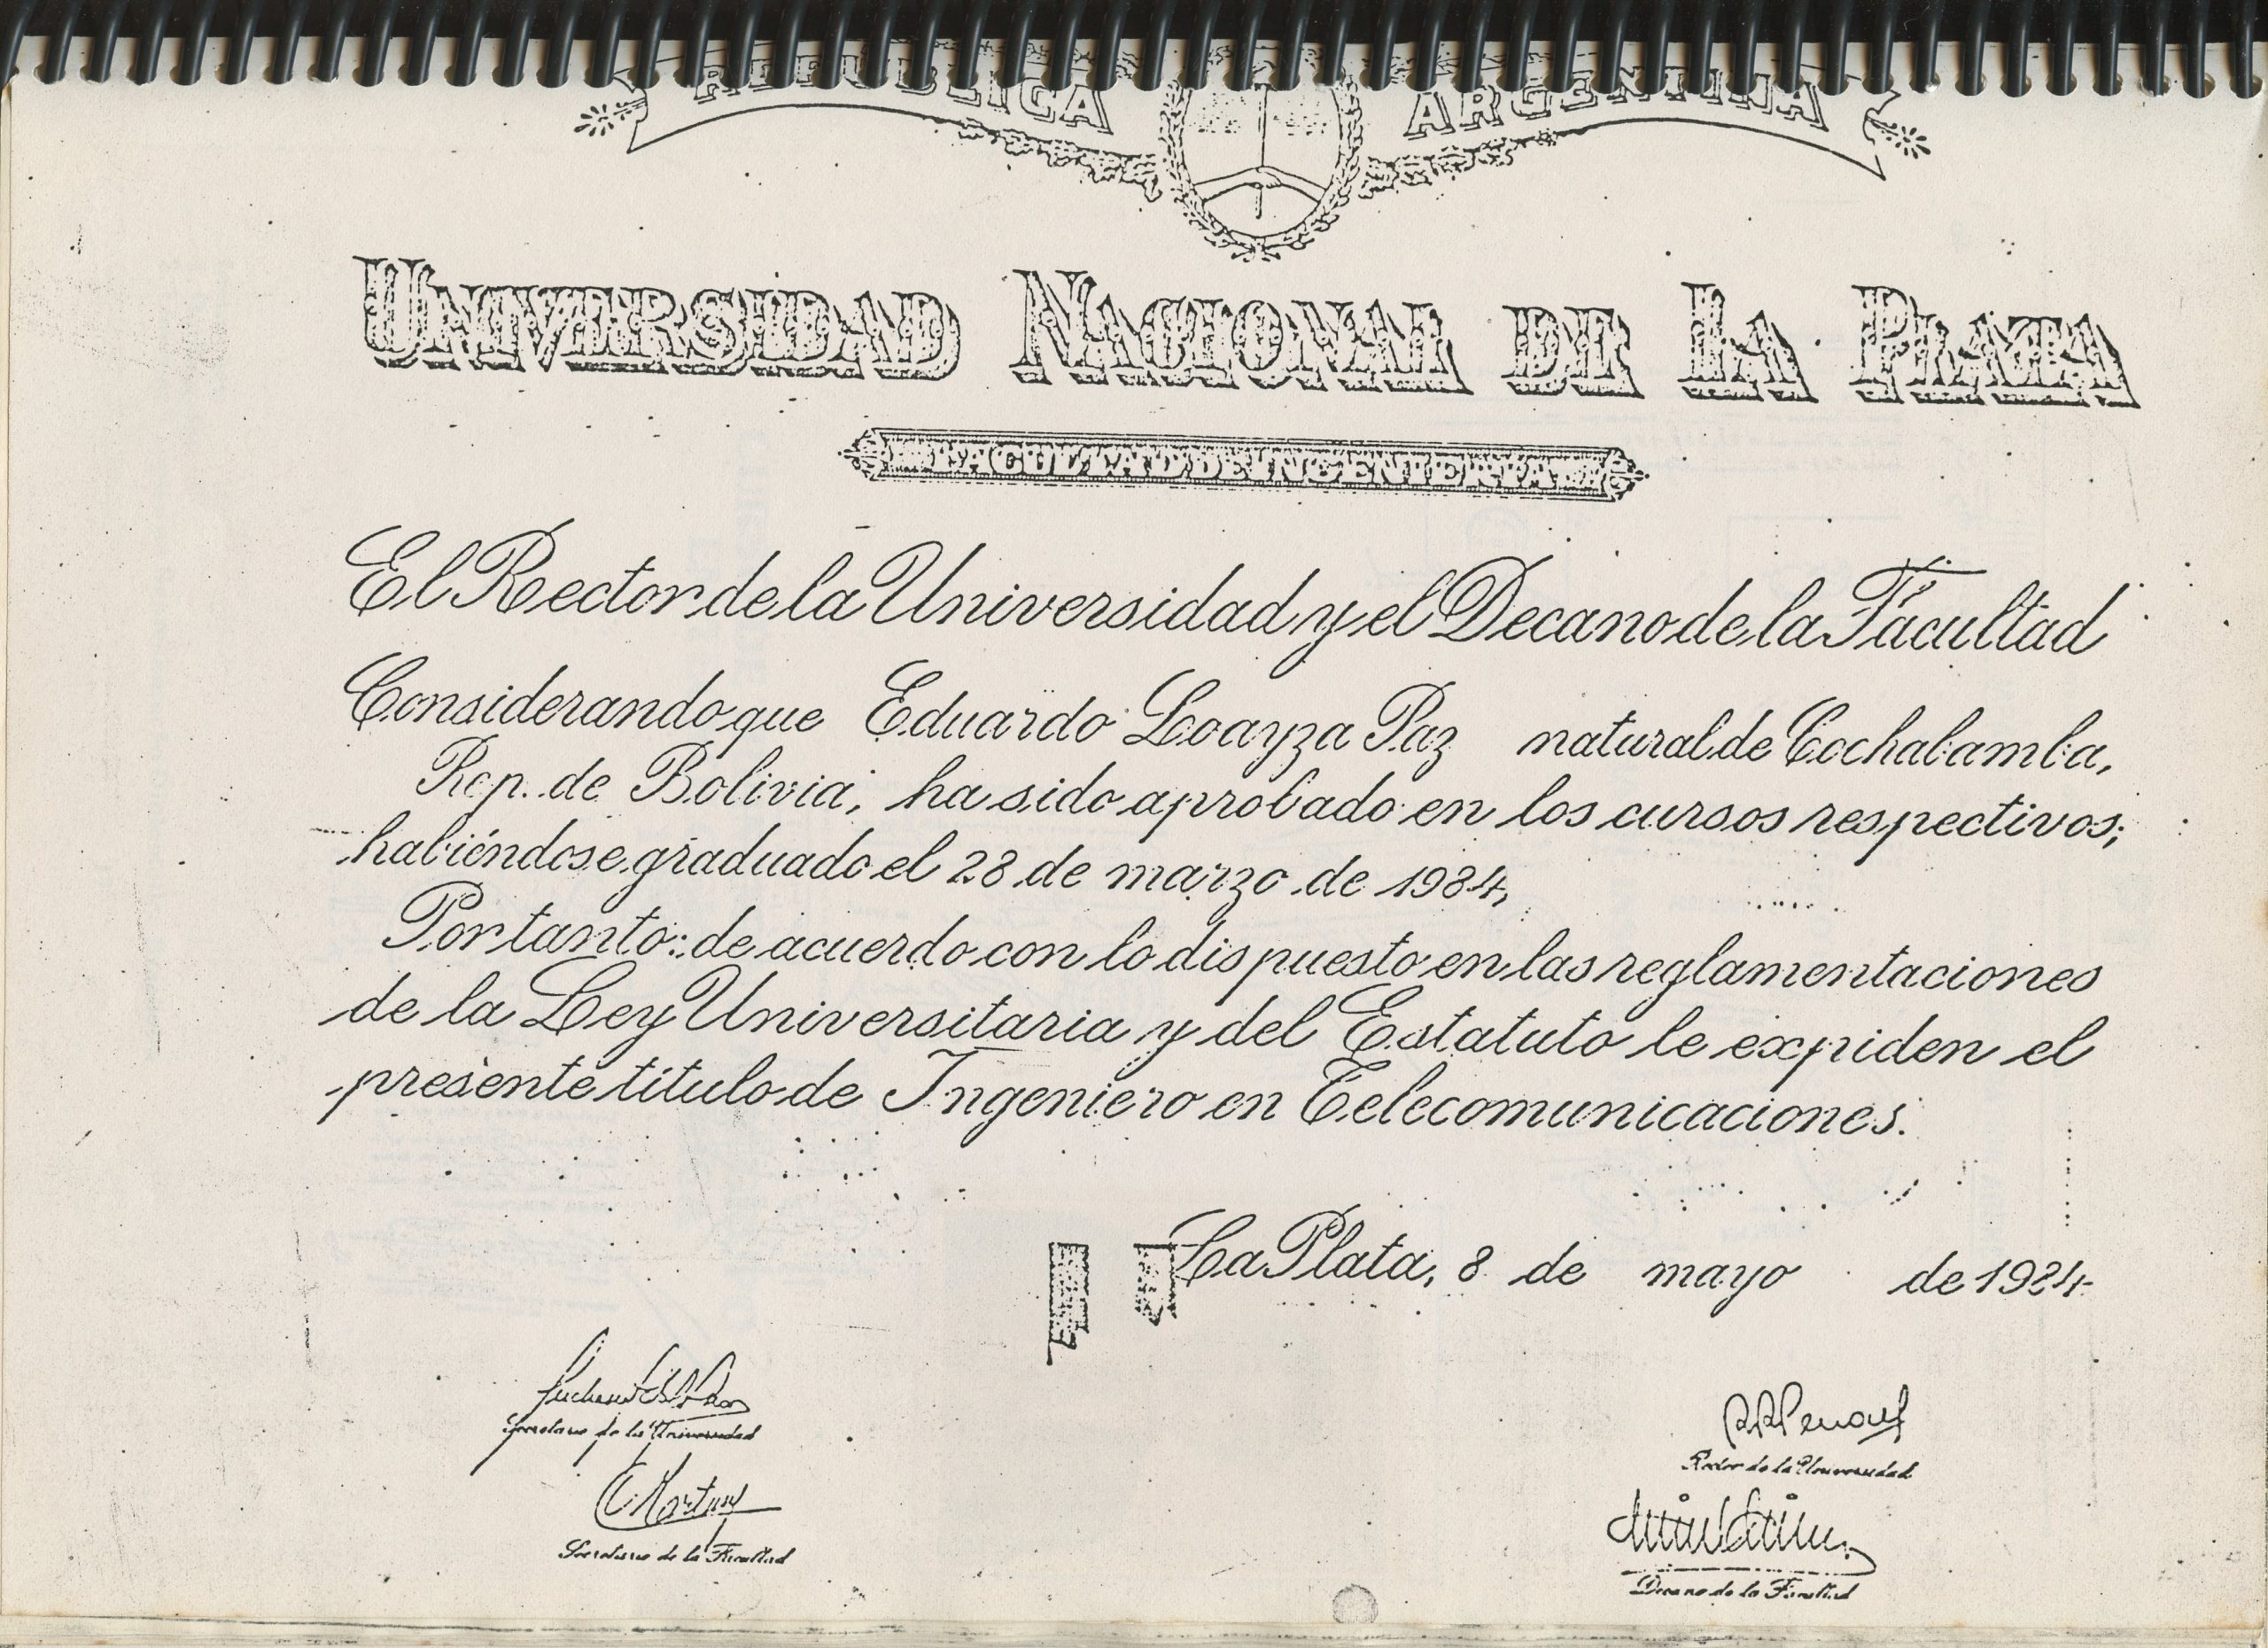 REPUBLICA ARGENTINA
UNIVERSIDAD NACIONAL DE LA PLATA
FACULTAD DE INGENIERIA
El Rector de la Universidad y el Decano de la Facultad
Considerando que Eduardo Loayza Paz natural de Cochabamba,
Rep. de Bolivia, ha sido aprobado en los cursos respectivos;
habiéndose graduado el 28 de marzo de 1984,
Por tanto: de acuerdo con lo dispuesto en las reglamentaciones
de la Ley Universitaria y del Estatuto le expiden el
presente título de Ingeniero en Telecomunicaciones.
La Plata, 8 de mayo de 1984
Secretario de la Universidad
Rector de la Universidad
Secretario de la Facultad
Decano de la Facultad